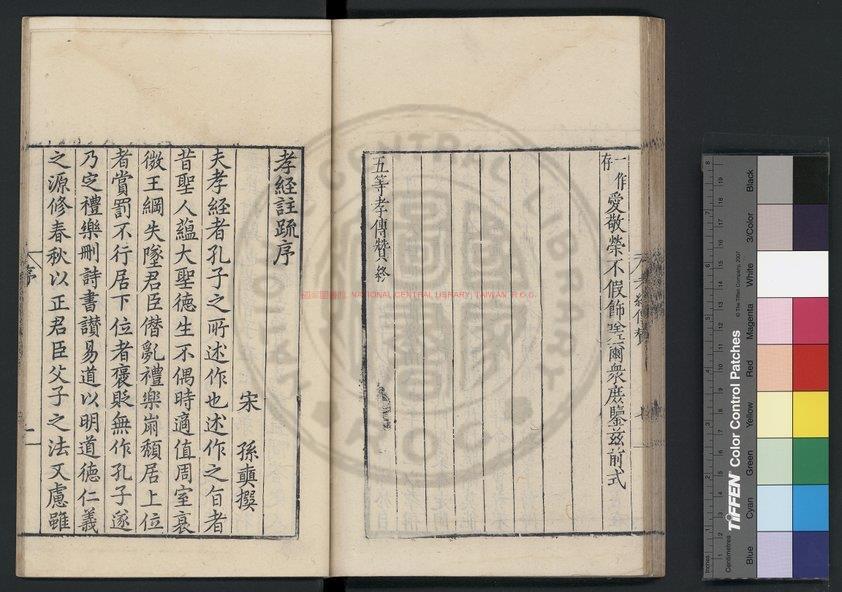 一作
存
愛敬榮不假飾嗟爾衆庶鑒茲前式
五等孝傳贊終
孝經註疏序
宋 孫奭撰
夫孝經者孔子之所述作也述作之旨者
昔聖人蘊大聖德生不偶時適值周室衰
微王綱失墜君臣僭亂禮樂崩頹居上位
者賞罰不行居下位者褒貶無作孔子遂
乃定禮樂刪詩書讚易道以明道德仁義
之源修春秋以正君臣父子之法又慮雖
序
NATIONAL CENTRAL LIBRARY, TAIWAN R.O.C.
TIFFEN Color Control Patches
© The Tiffen Company, 2007
Centimetres
Inches
Blue
Cyan
Green
Yellow
Red
Magenta
White
3/Color
Black